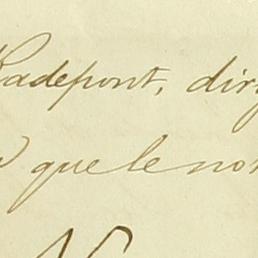 Radepont, dirg
que le nom
N